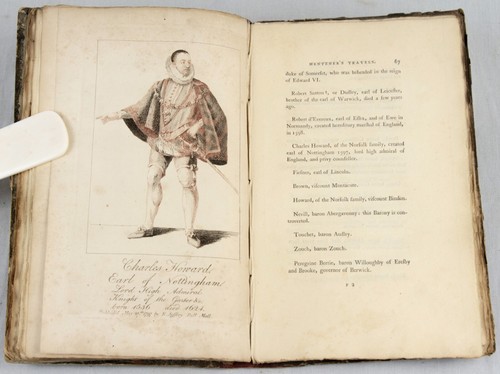 Charles Howard
Earl of Nottingham
Lord High Admiral
Knight of the Garter
born 1536 died 1624.
HENTZNER'S TRAVELS. 67
duke of Somerset, who was beheaded in the reign
of Edward VI.
Robert Sutton, or Dudley, earl of Leicester,
brother of the earl of Warwick, died a few years
ago.
Robert d'Evereux, earl of Essex, and of Ewe in
Normandy, created hereditary marshal of England,
in 1598.
Charles Howard, of the Norfolk family, created
earl of Nottingham 1597, lord high admiral of
England, and privy counsellor.
Fiennes, earl of Lincoln.
Brown, viscount Montacute.
Howard, of the Norfolk family, viscount Bindon.
Nevill, baron Abergavenny; this Barony is con-
troverted.
Touchet, baron Audley.
Zouch, baron Zouch.
Peregrine Bertie, baron Willoughby of Eresby
and Brooke, governor of Berwick.